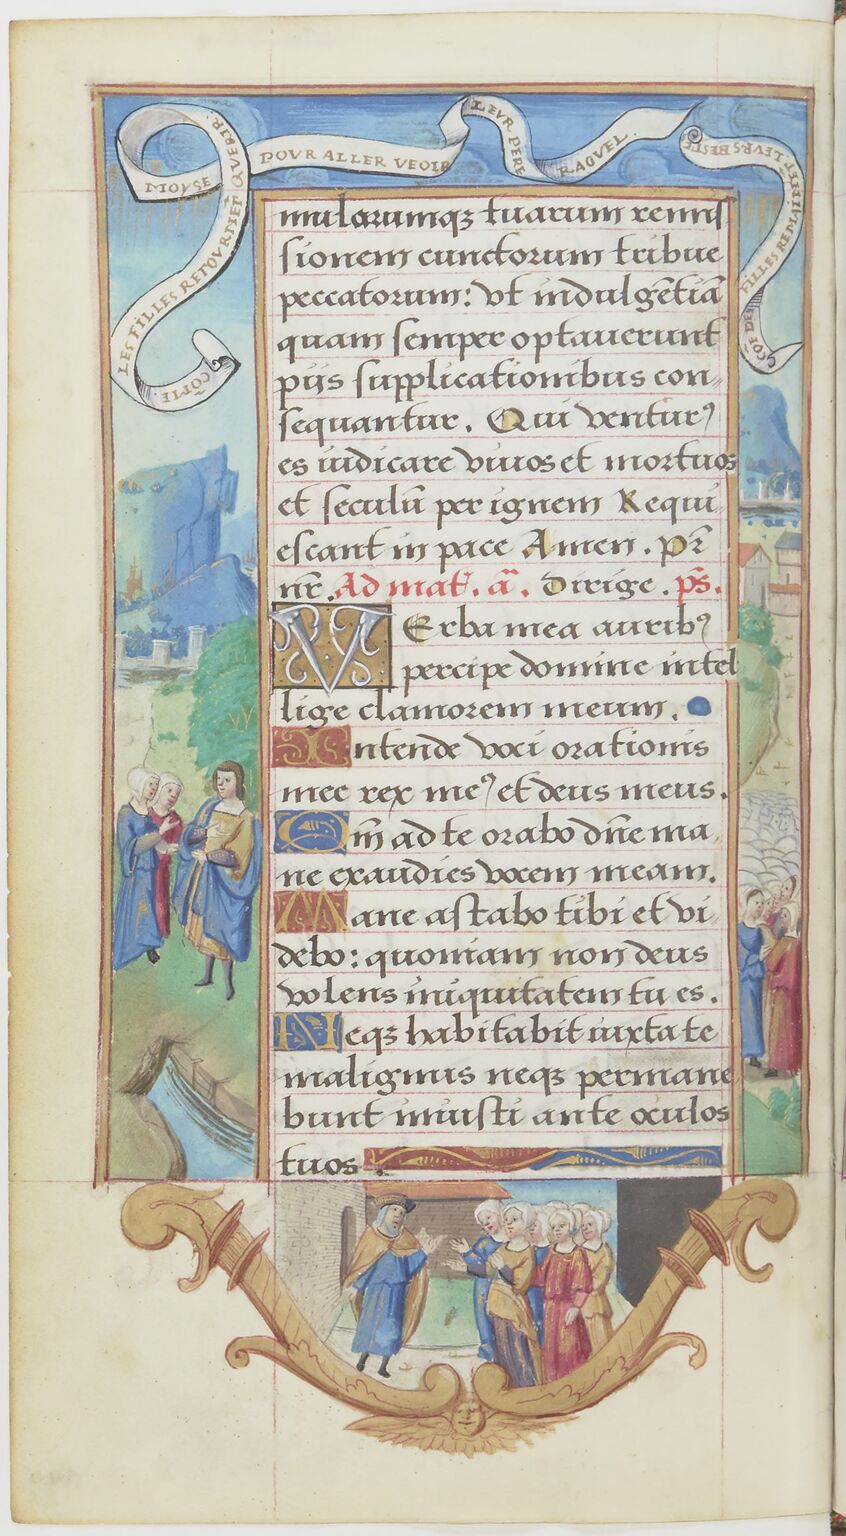 COM̄E LES FILLES RETOVRNE͂T QVERIR
MOYSE POVR ALLER VEOIR LEVR PERE RAGVEL.
CO͂E DES FILLES REM
ET LEVRS BESTE
mulorumqꝫ tuarum remis
sionem cunctorum tribue
peccatorum: vt indulgētiā
quam semper optauerunt
piis supplicationibus con-
sequantur. Qui ventur⁹
es iudicare viuos et mortuos
et seculū per ignem Requi
escant in pace Amen. Pr̄
nr̄. Ad mat̄. ā. Dirige. ps̄.
VErba mea aurib⁹
percipe domine intel
lige clamorem meum.
Intende voci orationis
mee rex me⁹ et deus meus.
Qm̄ ad te orabo dn̄e ma
ne exaudies vocem meam.
Mane astabo tibi et vi
debo: quoniam non deus
volens iniquitatem tu es.
Neqꝫ habitabit iuxta te
malignus neqꝫ permane
bunt iniusti ante oculos
tuos.